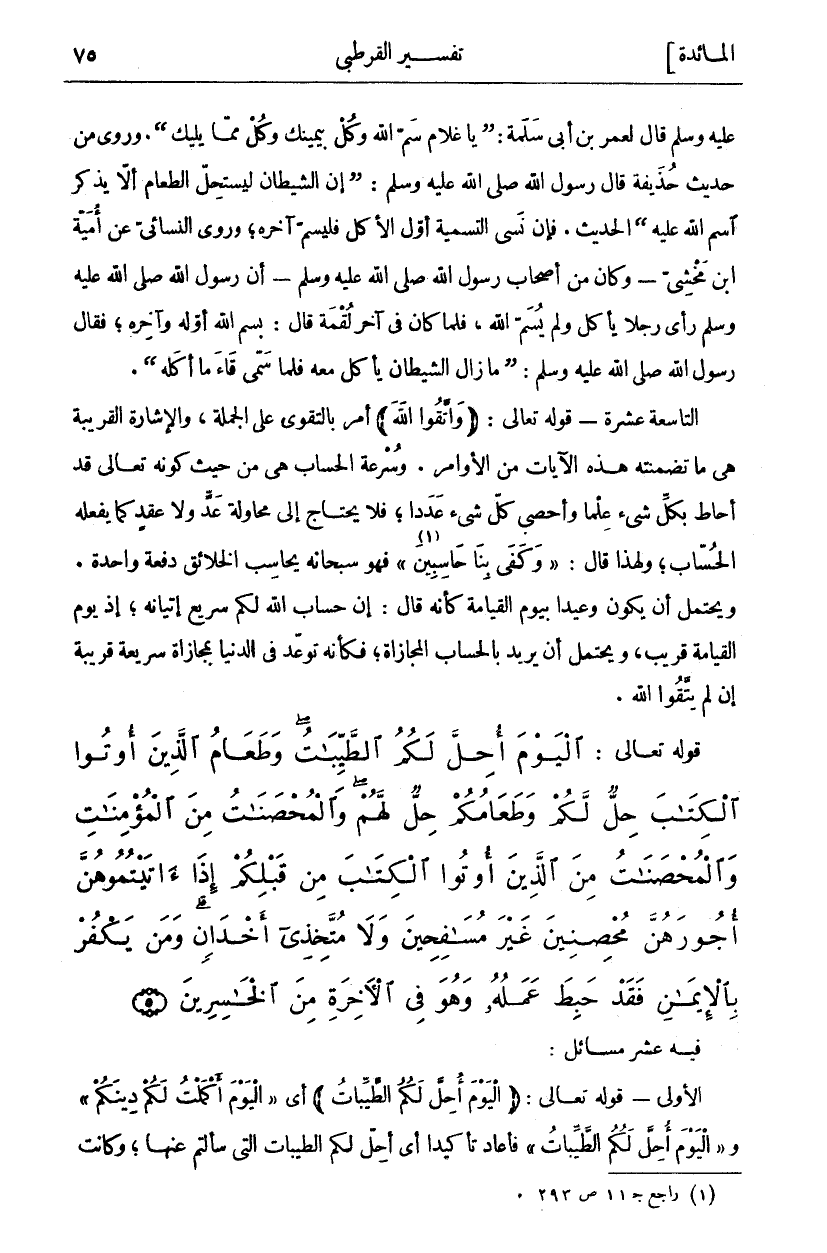 المائدة] تفسير القرطبي ٧٥
عليه وسلم قال لعمر بن أبى سَلَمة: ” يا غلام سَمّ الله وكُلْ بيمينك وكُلْ ممّا يليك “. وروى من
حديث حُذَيفة قال رسول الله صلى الله عليه وسلم : ” إن الشيطان ليستحلّ الطعام ألّا يذكر
ٱسم الله عليه “ الحديث . فإن نَسى التسمية أوّل الأكل فليسمّ آخره؛ وروى النسائىّ عن أُمَيّة
ابن مَخْشِىّ — وكان من أصحاب رسول الله صلى الله عليه وسلم — أن رسول الله صلى الله عليه
وسلم رأى رجلا يأكل ولم يُسَمّ الله ، فلما كان فى آخر لُقْمَة قال : بسم الله أوّله وآخِره ؛ فقال
رسول الله صلى الله عليه وسلم : ” ما زال الشيطان يأكل معه فلما سَمّى قَاءَ ما أكله “ .
التاسعة عشرة — قوله تعالى : ﴿وَٱتَّقُوا اللَّهَ﴾ أمر بالتقوى على الجملة ، والإشارة القريبة
هى ما تضمنته هذه الآيات من الأوامر . وسُرْعة الحساب هى من حيث كونه تعالى قد
أحاط بكلّ شىء عِلْما وأحصى كلّ شىء عَدَدا ؛ فلا يحتاج إلى محاولة عَدٍّ ولا عقدٍ كما يفعله
الحُسّاب؛ ولهذا قال : « وَكَفَى بِنَا حَاسِبِينَ(١) » فهو سبحانه يحاسِب الخلائق دفعة واحدة .
ويحتمل أن يكون وعيدا بيوم القيامة كأنه قال : إن حساب الله لكم سريع إتيانه ؛ إذ يوم
القيامة قريب، ويحتمل أن يريد بالحساب المجازاة؛ فكأنه توعّد فى الدنيا بمجازاة سريعة قريبة
إن لم يَتَّقُوا الله .
قوله تعالى : ٱلْيَوْمَ أُحِلَّ لَكُمُ ٱلطَّيِّبَٰتُۖ وَطَعَامُ ٱلَّذِينَ أُوتُوا
ٱلْكِتَٰبَ حِلٌّ لَّكُمْ وَطَعَامُكُمْ حِلٌّ لَّهُمْۖ وَٱلْمُحْصَنَٰتُ مِنَ ٱلْمُؤْمِنَٰتِ
وَٱلْمُحْصَنَٰتُ مِنَ ٱلَّذِينَ أُوتُوا ٱلْكِتَٰبَ مِن قَبْلِكُمْ إِذَا ءَاتَيْتُمُوهُنَّ
أُجُورَهُنَّ مُحْصِنِينَ غَيْرَ مُسَٰفِحِينَ وَلَا مُتَّخِذِىٓ أَخْدَانٍۗ وَمَن يَكْفُرْ
بِٱلْإِيمَٰنِ فَقَدْ حَبِطَ عَمَلُهُۥ وَهُوَ فِى ٱلْأَخِرَةِ مِنَ ٱلْخَٰسِرِينَ ۝٥
فيه عشر مسائل :
الأولى — قوله تعالى : ﴿ الْيَوْمَ أُحِلَّ لَكُمُ الطَّيِّبَاتُ ﴾ أى « الْيَوْمَ أَكْمَلْتُ لَكُمْ دِينَكُمْ »
و « الْيَوْمَ أُحِلَّ لَكُمُ الطَّيِّبَاتُ » فأعاد تأكيدا أى أحِلّ لكم الطيبات التى سألتم عنها ؛ وكانت
(١) راجع جـ ١١ ص ٢٩٣ .